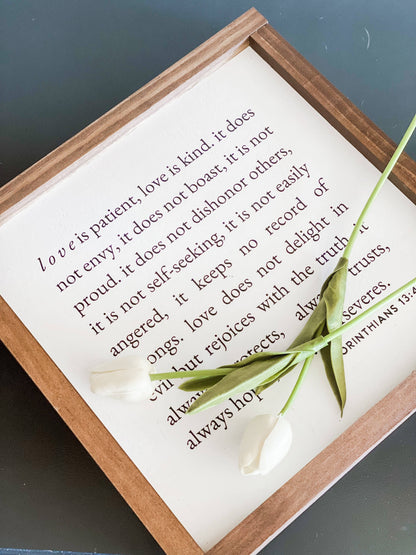 love is patient, love is kind. it does
not envy, it does not boast, it is not
proud. it does not dishonor others,
it is not self-seeking, it is not easily
angered, it keeps no record of
ongs. love does not delight in
evil but rejoices with the truth. it
always protects, always trusts,
always hop severes.
ORINTHIANS 13:4